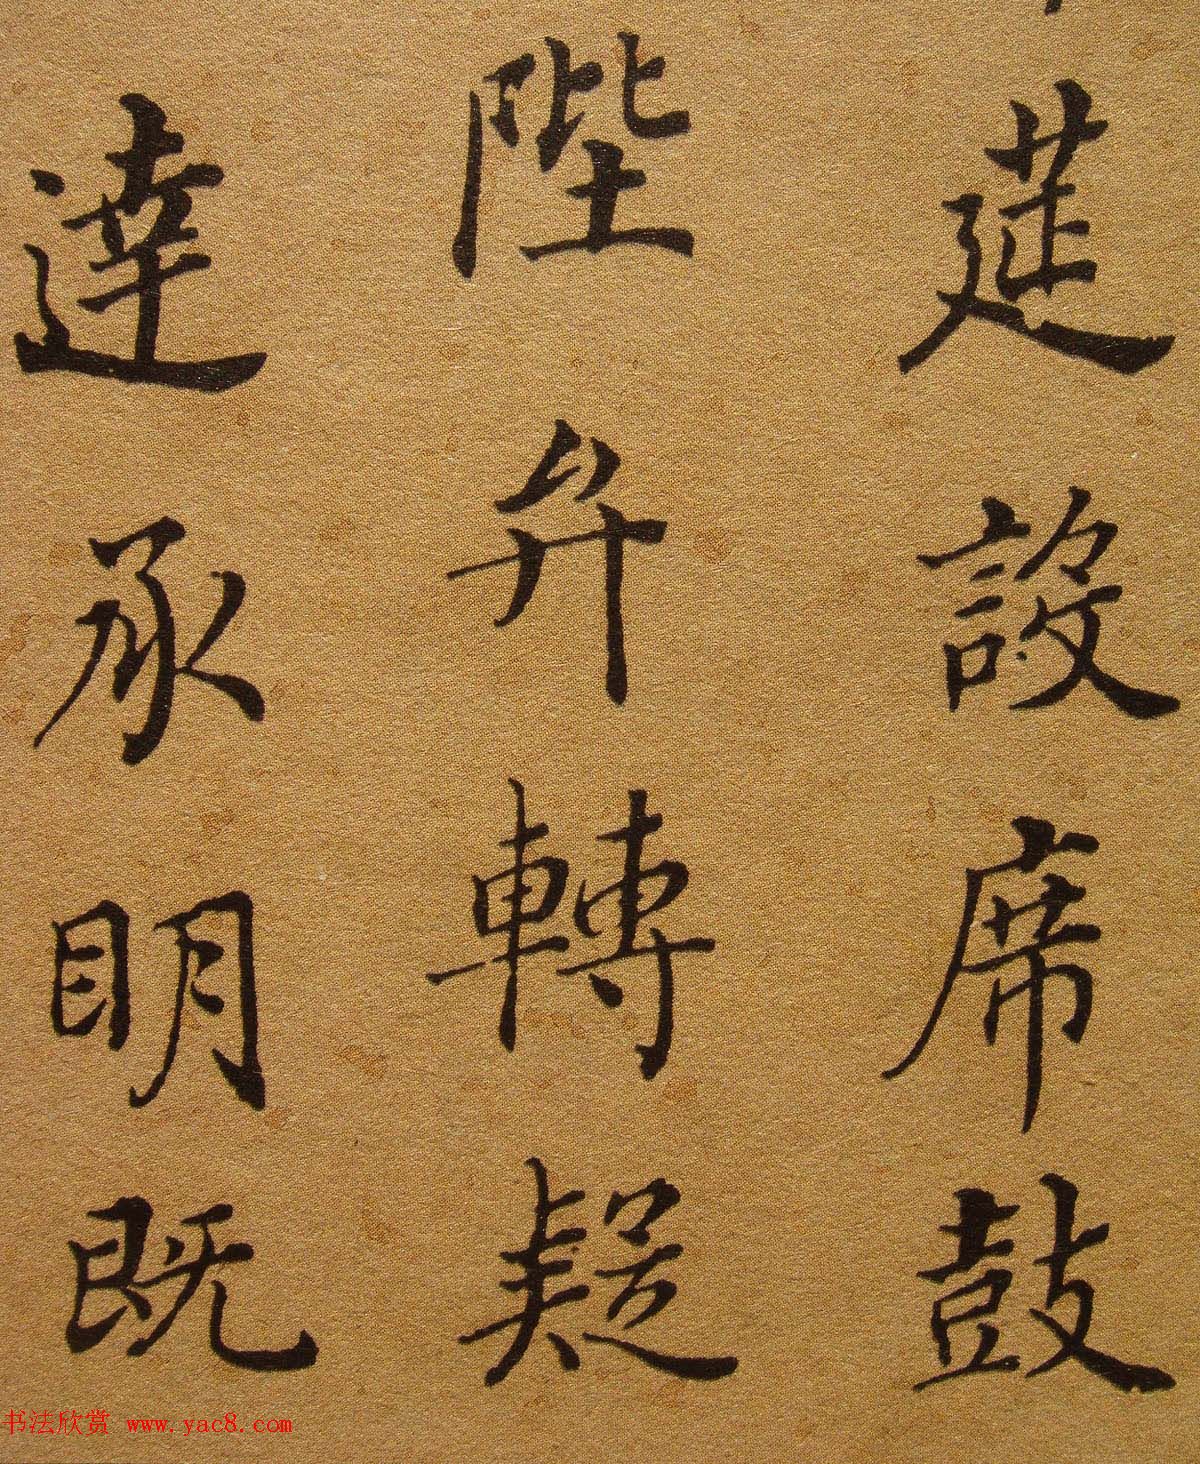 莚設席鼓
陛弁轉疑
達承明既
书法欣赏 www.yac8.com